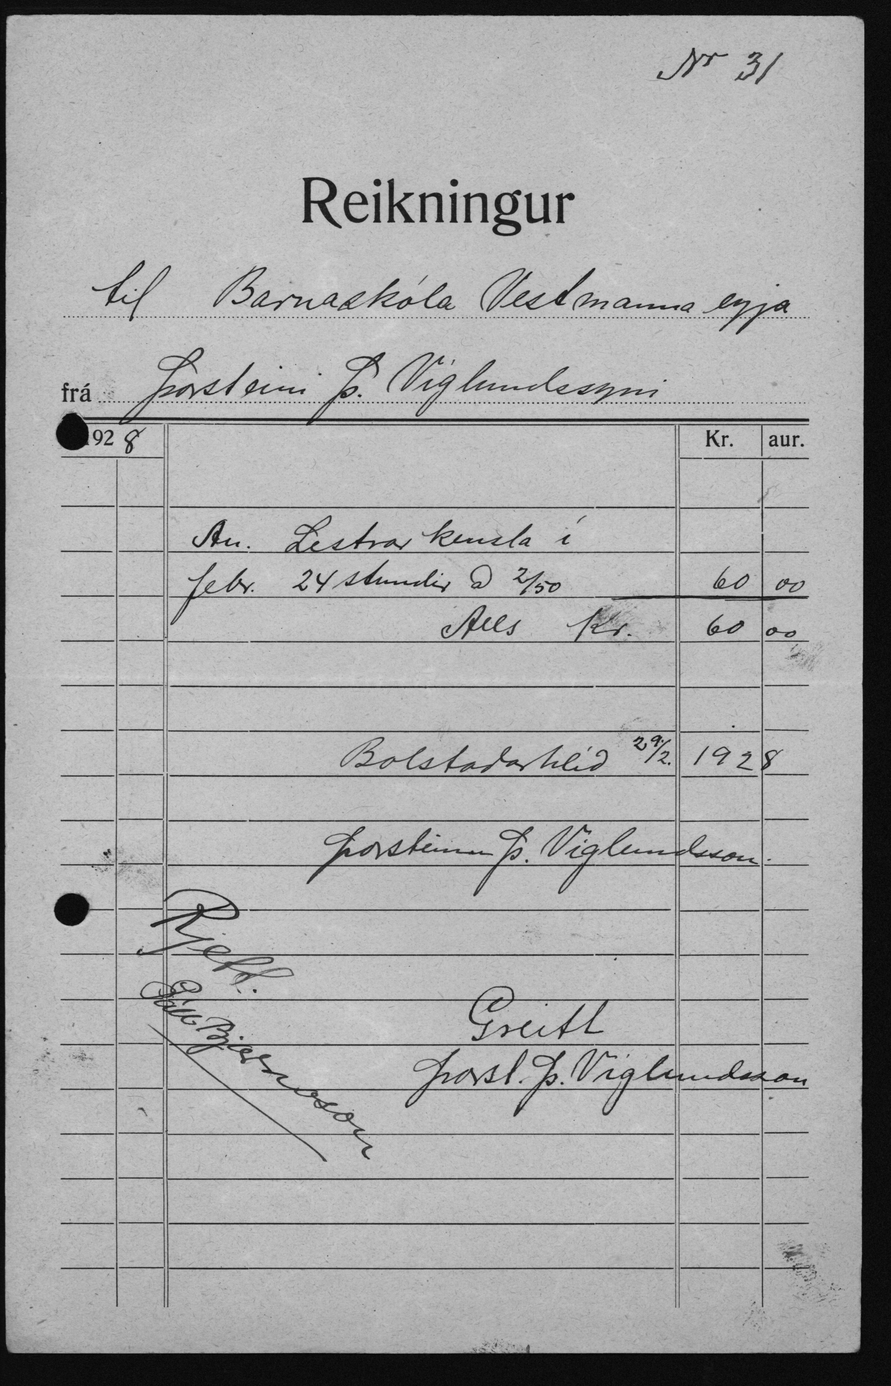 Nr 31
Reikningur
til Barnaskóla Vestmannaeyja
frá Þorsteini Þ. Víglundssyni
1928 Kr. aur.
An. Lestrarkensla í
febr. 24 stundir à 2/50 60 00
Alls Kr. 60 00
Bolstadarhlíd 29/2. 1928
Þorsteinn Þ. Víglundsson.
Rjett.
Páll Bjarnason
Greitt
Þorst. Þ. Víglundsson